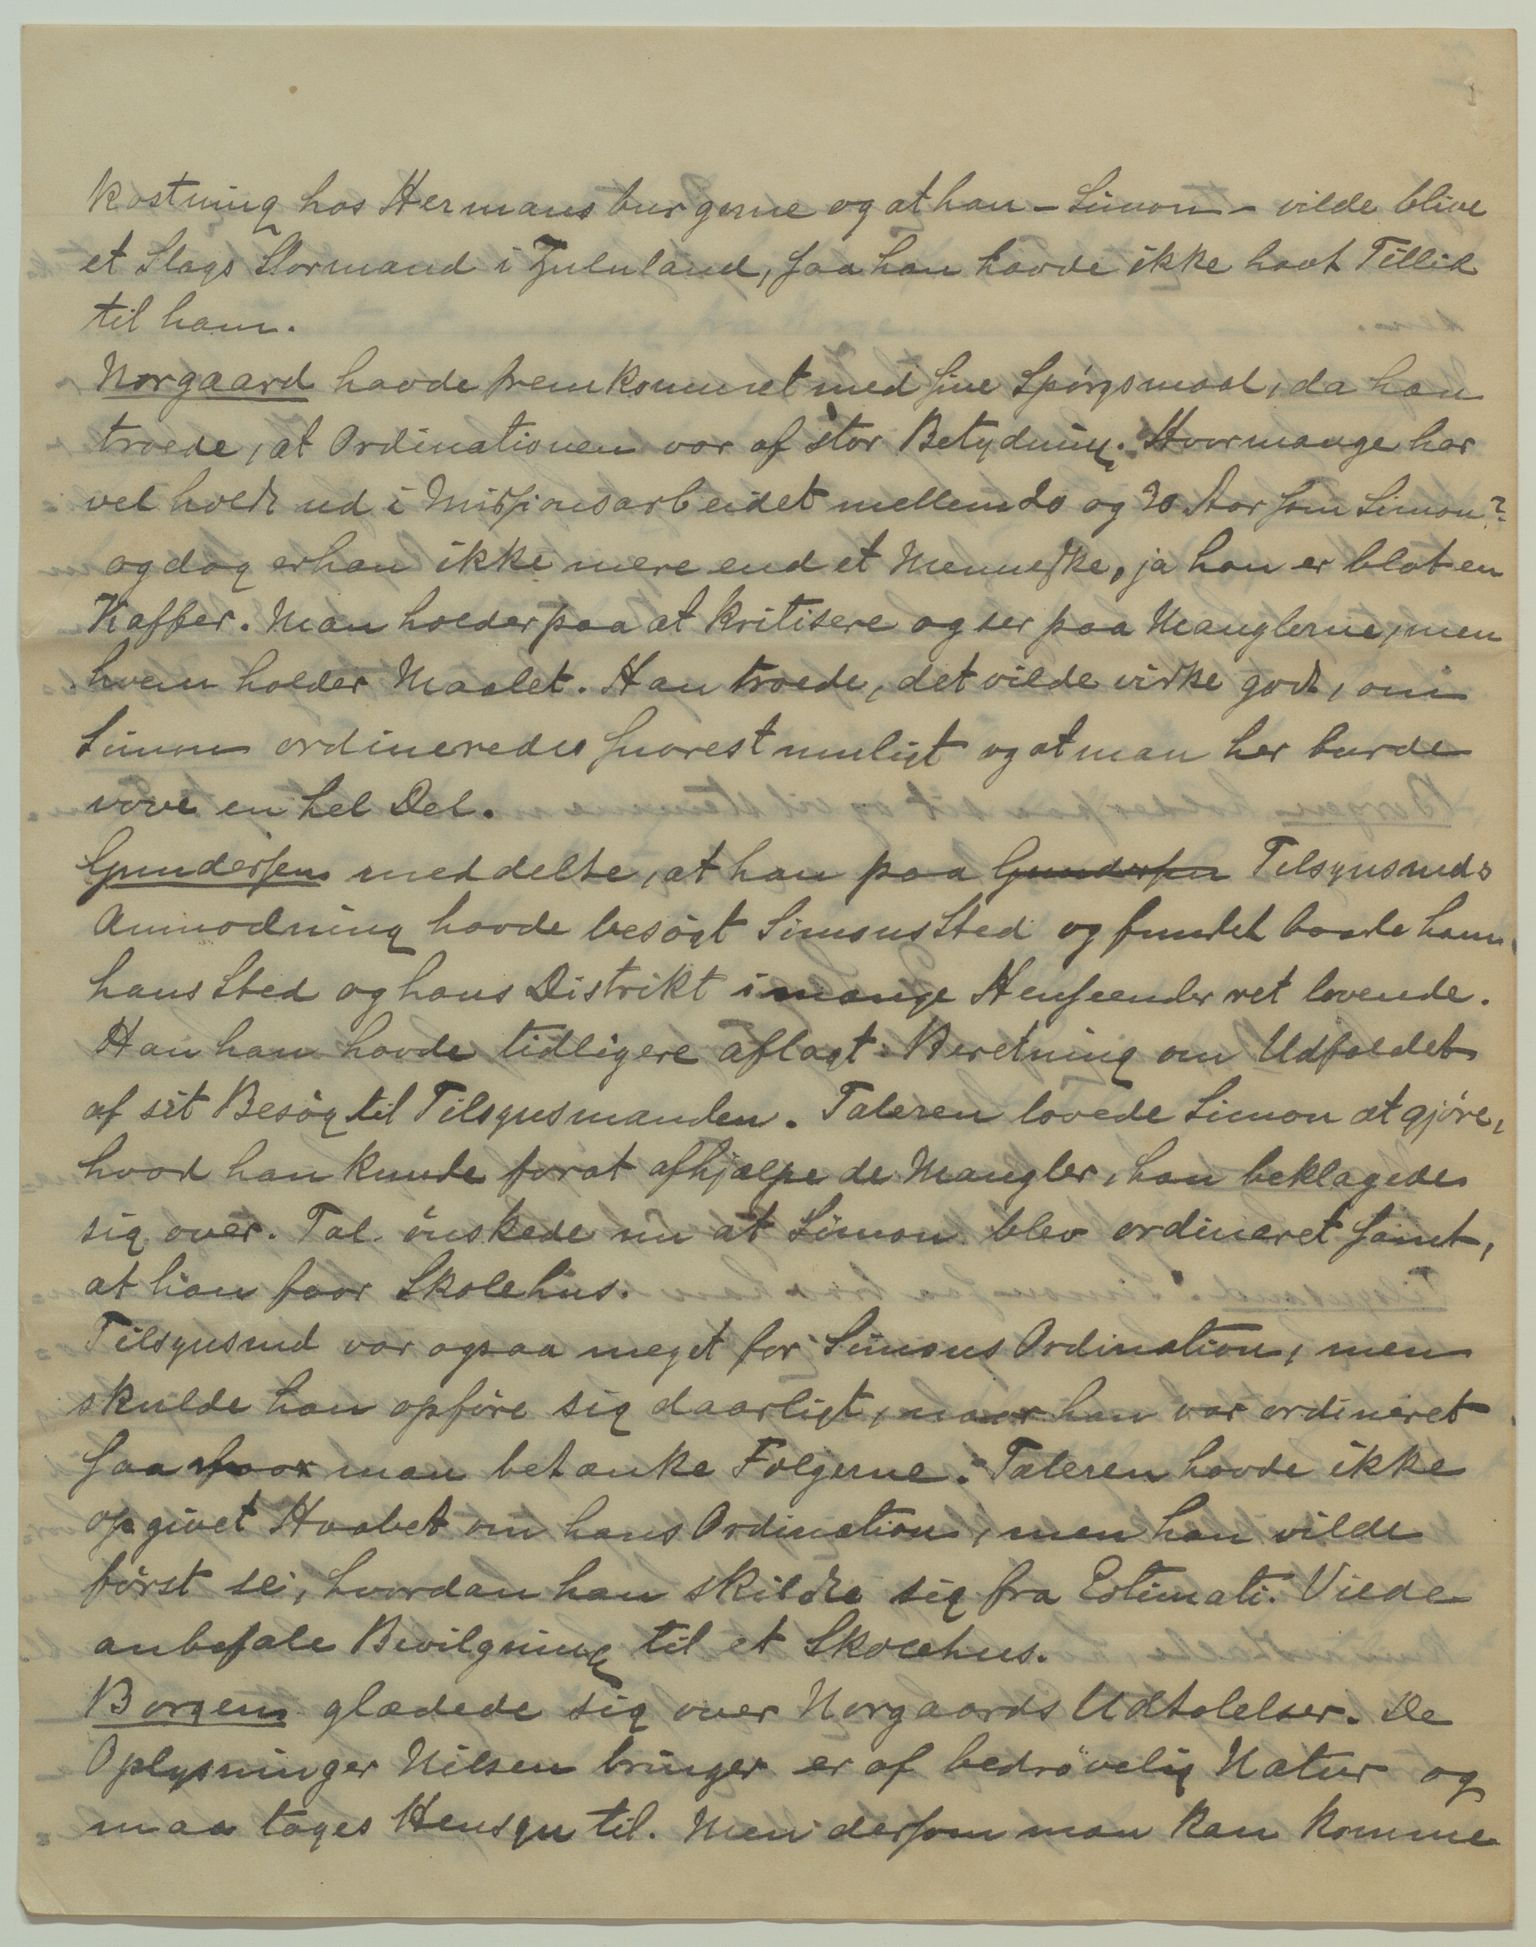 kostning hos Hermansburgerne og at han – Simon – vilde blive
et Slags Stormand i Zululand, saa han havde ikke havt Tillid
til ham.
Norgaard havde fremkommet med sine Spørgsmaal, da han
troede, at Ordinationen var af stor Betydning. Hvormange har
vel holdt ud i Missionsarbeidet mellem 20 og 30 Aar som Simon?
og dog er han ikke mere end et Menneske, ja han er blot en
Kaffer. Man holder paa at kritisere og ser paa Manglerne, men
hvem holder Maalet. Han troede, det vilde virke godt, om
Simon ordineredes snarest muligt og at man her burde
vove en hel Del.
Gundersen meddelte, at han paa Gundersen Tilsynsmds
Anmodning havde besøgt Simons Sted og fundet baade ham,
hans Sted og hans Distrikt i mange Henseender ret lovende.
Han han havde tidligere aflagt Beretning om Udfaldet
af sit Besøg til Tilsynsmanden. Taleren lovede Simon at gjøre,
hvad han kunde forat afhjælpe de Mangler, han beklagede
sig over. Tal. ønskede nu at Simon blev ordineret samt,
at han faar Skolehus.
Tilsynsmd var ogsaa meget for Simons Ordination, men
skulde han opføre sig daarligt, naar han var ordineret
saa faar man betænke Følgerne. Taleren havde ikke
opgivet Haabet om hans Ordination, men han vilde
først se, hvordan han skildte sig fra Estimati. Vilde
anbefale Bevilgning til et Skolehus.
Borgen glædede sig over Norgaards Udtalelser. De
Oplysninger Nilsen bringer er af bedrøvelig Natur og
maa tages Hensyn til. Men dersom man kan komme